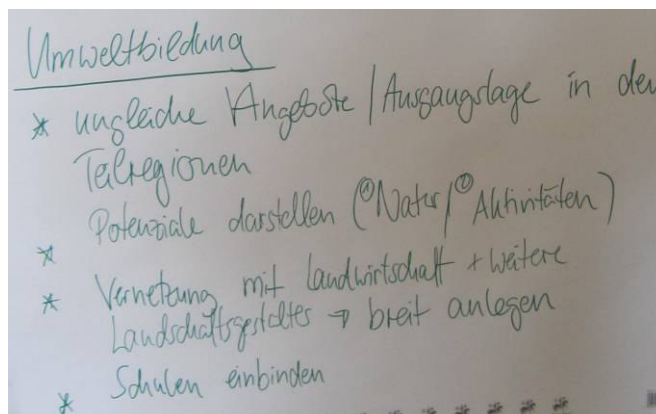 Umweltbildung
* ungleiche Angebote / Ausgangslage in den
Teilregionen
* Potenziale darstellen (① Natur / ② Aktivitäten)
* Vernetzung mit Landwirtschaft + weitere
Landschaftsgestalter → breit anlegen
* Schulen einbinden